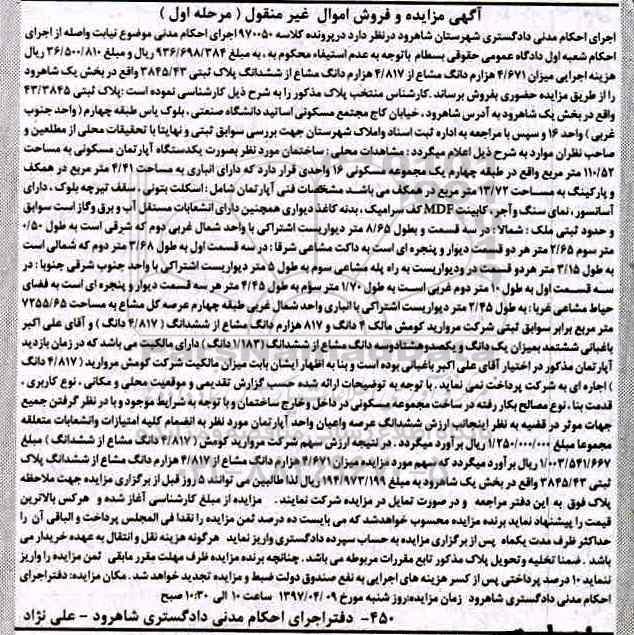 آگهی مزایده و فروش اموال غیر منقول ( مرحله اول )
اجرای احکام مدنی دادگستری شهرستان شاهرود درنظر دارد درپرونده کلاسه ۹۷۰۰۵۰اجرای احکام مدنی موضوع نیابت واصله از اجرای
احکام شعبه اول دادگاه عمومی حقوقی بسطام باتوجه به عدم استیفاء محکوم به ، به مبلغ ۹۳۶/۶۹۸/۳۸۴ ریال و مبلغ ۳۶/۵۰۰/۸۱۰ ریال
هزینه اجرایی میزان ۴/۶۷۱ هزارم دانگ مشاع از ۴/۸۱۷ هزارم دانگ مشاع از ششدانگ پلاک ثبتی ۳۸۴۵/۴۳ واقع در بخش یک شاهرود
را از طریق مزایده حضوری بفروش برساند .کارشناس منتخب پلاک مذکور را به شرح ذیل کارشناسی نموده است :پلاک ثبتی ۴۳/۳۸۴۵
واقع در بخش یک شاهرود به آدرس شاهرود ، خیابان کاج مجتمع مسکونی اساتید دانشگاه صنعتی ، بلوک یاس طبقه چهارم ( واحد جنوب
غربی ) واحد ۱۶ و سپس با مراجعه به اداره ثبت اسناد واملاک شهرستان جهت بررسی سوابق ثبتی و نهایتا با تحقیقات محلی از مطلعین و
صاحب نظران موارد به شرح ذیل اعلام میگردد : مشاهدات محلی : ساختمان مورد نظر بصورت یکدستگاه آپارتمان مسکونی به مساحت
۱۱۰/۵۲ متر مربع واقع در طبقه چهارم یک مجموعه مسکونی ۱۶ واحدی قرار دارد که دارای انباری به مساحت ۴/۴۱ متر مربع در همکف
و پارکینگ به مساحت ۱۳/۷۲ متر مربع در همکف می باشد مشخصات فنی آپارتمان شامل : اسکلت بتونی ، سقف تیرچه بلوک ، دارای
آسانسور ، نمای سنگ و آجر ، کابینت MDF کف سرامیک ، بدنه کاغذ دیواری همچنین دارای انشعابات مستقل آب و برق وگاز است سوابق
و حدود ثبتی ملک : شمالا : در سه قسمت و بطول ۸/۶۵ متر دیواریست اشتراکی با واحد شمال غربی دوم که شرقی است به طول ۰/۵۰
متر سوم ۲/۶۵ متر هر دو قسمت دیوار و پنجره ای است به داکت مشاعی شرقا : در سه قسمت اول به طول ۳/۶۸ متر دوم که شمالی است
به طول ۳/۱۵ متر هردو قسمت در ودیواریست به راه پله مشاعی سوم به طول ۵ متر دیواریست اشتراکی با واحد جنوب شرقی جنوبا : در
سه قسمت اول به طول ۱۰ متر دوم غربی است به طول ۱/۷۰ متر سوم به طول ۴/۴۵ متر هر سه قسمت دیوار و پنجره ای است به فضای
حیاط مشاعی غربا : به طول ۲/۴۵ متر دیواریست اشتراکی با انباری واحد شمال غربی طبقه چهارم عرصه کل مشاع به مساحت ۷۲۵۵/۶۵
متر مربع برابر سوابق ثبتی شرکت مروارید کومش مالک ۴ دانگ و ۸۱۷ هزارم دانگ مشاع از ششدانگ ( ۴/۸۱۷ دانگ ) و آقای علی اکبر
باغبانی ششتمد بمیزان یک دانگ و یکصدوهشتادوسه دانگ مشاع از ششدانگ (۱/۱۸۳ دانگ) دارای مالکیت می باشد که در زمان بازدید
آپارتمان مذکور در اختیار آقای علی اکبر باغبانی بوده است و بنا به اظهار ایشان بابت میزان مالکیت شرکت کومش مروارید ( ۴/۸۱۷ دانگ
) اجاره ای به شرکت پرداخت نمی نماید . با توجه به توضیحات ارائه شده حسب گزارش تقدیمی و موقعیت محلی و مکانی ، نوع کاربری ،
قدمت بنا ، نوع مصالح بکار رفته در ساخت مجموعه مسکونی در داخل وخارج ساختمان و با توجه به شرایط موجود و با در نظر گرفتن جمیع
جهات موثر در قضیه به نظر اینجانب ارزش ششدانگ عرصه واعیان واحد آپارتمان مورد نظر به انضمام کلیه امتیازات وانشعابات متعلقه
مجموعا مبلغ ۱/۲۵۰/۰۰۰/۰۰۰ ریال برآورد میگردد . در نتیجه ارزش سهم شرکت مروارید کومش ( ۴/۸۱۷ دانگ مشاع از ششدانگ ) مبلغ
۱/۰۰۳/۵۴۱/۶۶۷ ریال برآورد میگردد که سهم مورد مزایده میزان ۴/۶۷۱ هزارم دانگ مشاع از ۴/۸۱۷ هزارم دانگ مشاع از ششدانگ پلاک
ثبتی ۳۸۴۵/۴۳ واقع در بخش یک شاهرود به مبلغ ۱۹۴/۹۷۳/۱۹۹ ریال لذا طالبین می توانند ۵ روز قبل از برگزاری مزایده جهت ملاحظه
پلاک فوق به این دفتر مراجعه و در صورت تمایل در مزایده شرکت نمایند . مزایده از مبلغ کارشناسی آغاز شده و هرکس بالاترین
قیمت را پیشنهاد نماید برنده مزایده محسوب خواهدشد که می بایست ده درصد ثمن مزایده را نقدا فی المجلس پرداخت و الباقی آن را
حداکثر ظرف مدت یکماه پس از برگزاری مزایده به حساب سپرده دادگستری واریز نماید هرگونه هزینه نقل و انتقال به عهده خریدار می
باشد . ضمنا تخلیه و تحویل پلاک مذکور تابع مقررات مربوطه می باشد . چنانچه برنده مزایده ظرف مهلت مقرر مابقی ثمن مزایده را واریز
ننماید ۱۰ درصد پرداختی پس از کسر هزینه های اجرایی به نفع صندوق دولت ضبط و مزایده تجدید خواهد شد . مکان مزایده: دفتراجرای
احکام مدنی دادگستری شاهرود زمان مزایده:روز شنبه مورخ ۱۳۹۷/۰۴/۰۹ ساعت ۱۰ الی ۱۰:۳۰ صبح
۴۵۰- دفتراجرای احکام مدنی دادگستری شاهرود - علی نژاد